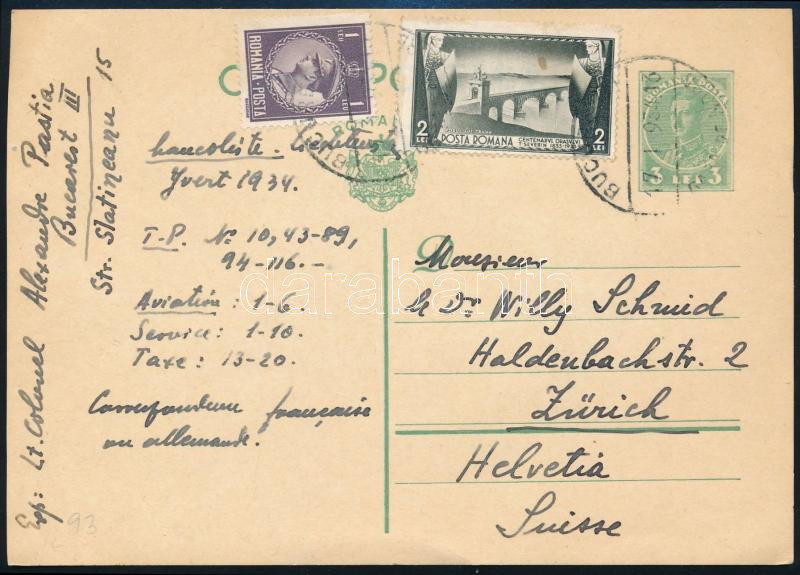 1 LEU
1 LEU
ROMANIA·POSTA
2 LEI
2 LEI
POSTA ROMANA
CENTENARUL ORASULUI
T. SEVERIN 1833-1933
3 LEI 3
BUC
Exp: Lt. Colonel Alexandre Pastia
Bucarest III
Str. Slatineanu 15
Yvert 1934.
T.P. No 10, 43-89,
94-116.-
Aviation: 1-6.
Service: 1-10.
Taxe: 13-20.
française
ou allemande.
93
Monsieur
le Dr. Willy Schmid
Haldenbachstr. 2
Zürich
Helvetia
Suisse
darabanth